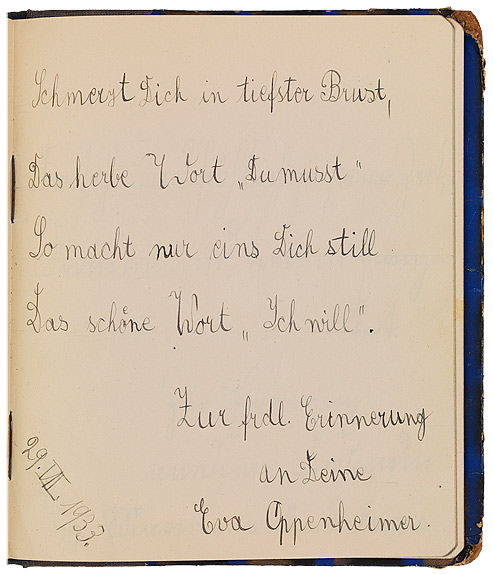 Schmerzt Dich in tiefster Brust,
Das herbe Wort „Du musst"
So macht nur eins Dich still
Das schöne Wort „Ich will".
Zur frdl. Erinnerung
an Deine
Eva Oppenheimer.
29. VII. 1933.